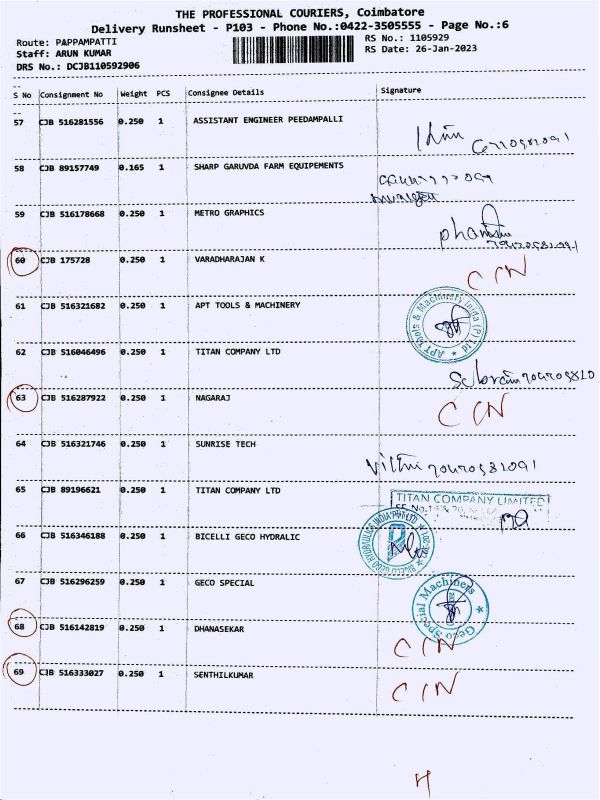 THE PROFESSIONAL COURIERS, Coimbatore
Delivery Runsheet - P103 - Phone No.:0422-3505555 - Page No.:6
Route: PAPPAMPATTI
Staff: ARUN KUMAR
DRS No.: DCJB110592906
RS No.: 1105929
RS Date: 26-Jan-2023
S No Consignment No Weight PCS Consignee Details Signature
57 CJB 516281556 0.250 1 ASSISTANT ENGINEER PEEDAMPALLI
58 CJB 89157749 0.165 1 SHARP GARUVDA FARM EQUIPEMENTS
59 CJB 516178668 0.250 1 METRO GRAPHICS
60 CJB 175728 0.250 1 VARADHARAJAN K CIN
61 CJB 516321682 0.250 1 APT TOOLS & MACHINERY
APT Tools & Machinery India (P) Ltd
62 CJB 516046496 0.250 1 TITAN COMPANY LTD
63 CJB 516287922 0.250 1 NAGARAJ CIN
64 CJB 516321746 0.250 1 SUNRISE TECH
65 CJB 89196621 0.250 1 TITAN COMPANY LTD
TITAN COMPANY LIMITED
66 CJB 516346188 0.250 1 BICELLI GECO HYDRALIC
67 CJB 516296259 0.250 1 GECO SPECIAL
Geco Special Machiners
68 CJB 516142819 0.250 1 DHANASEKAR CIN
69 CJB 516333027 0.250 1 SENTHILKUMAR CIN
4